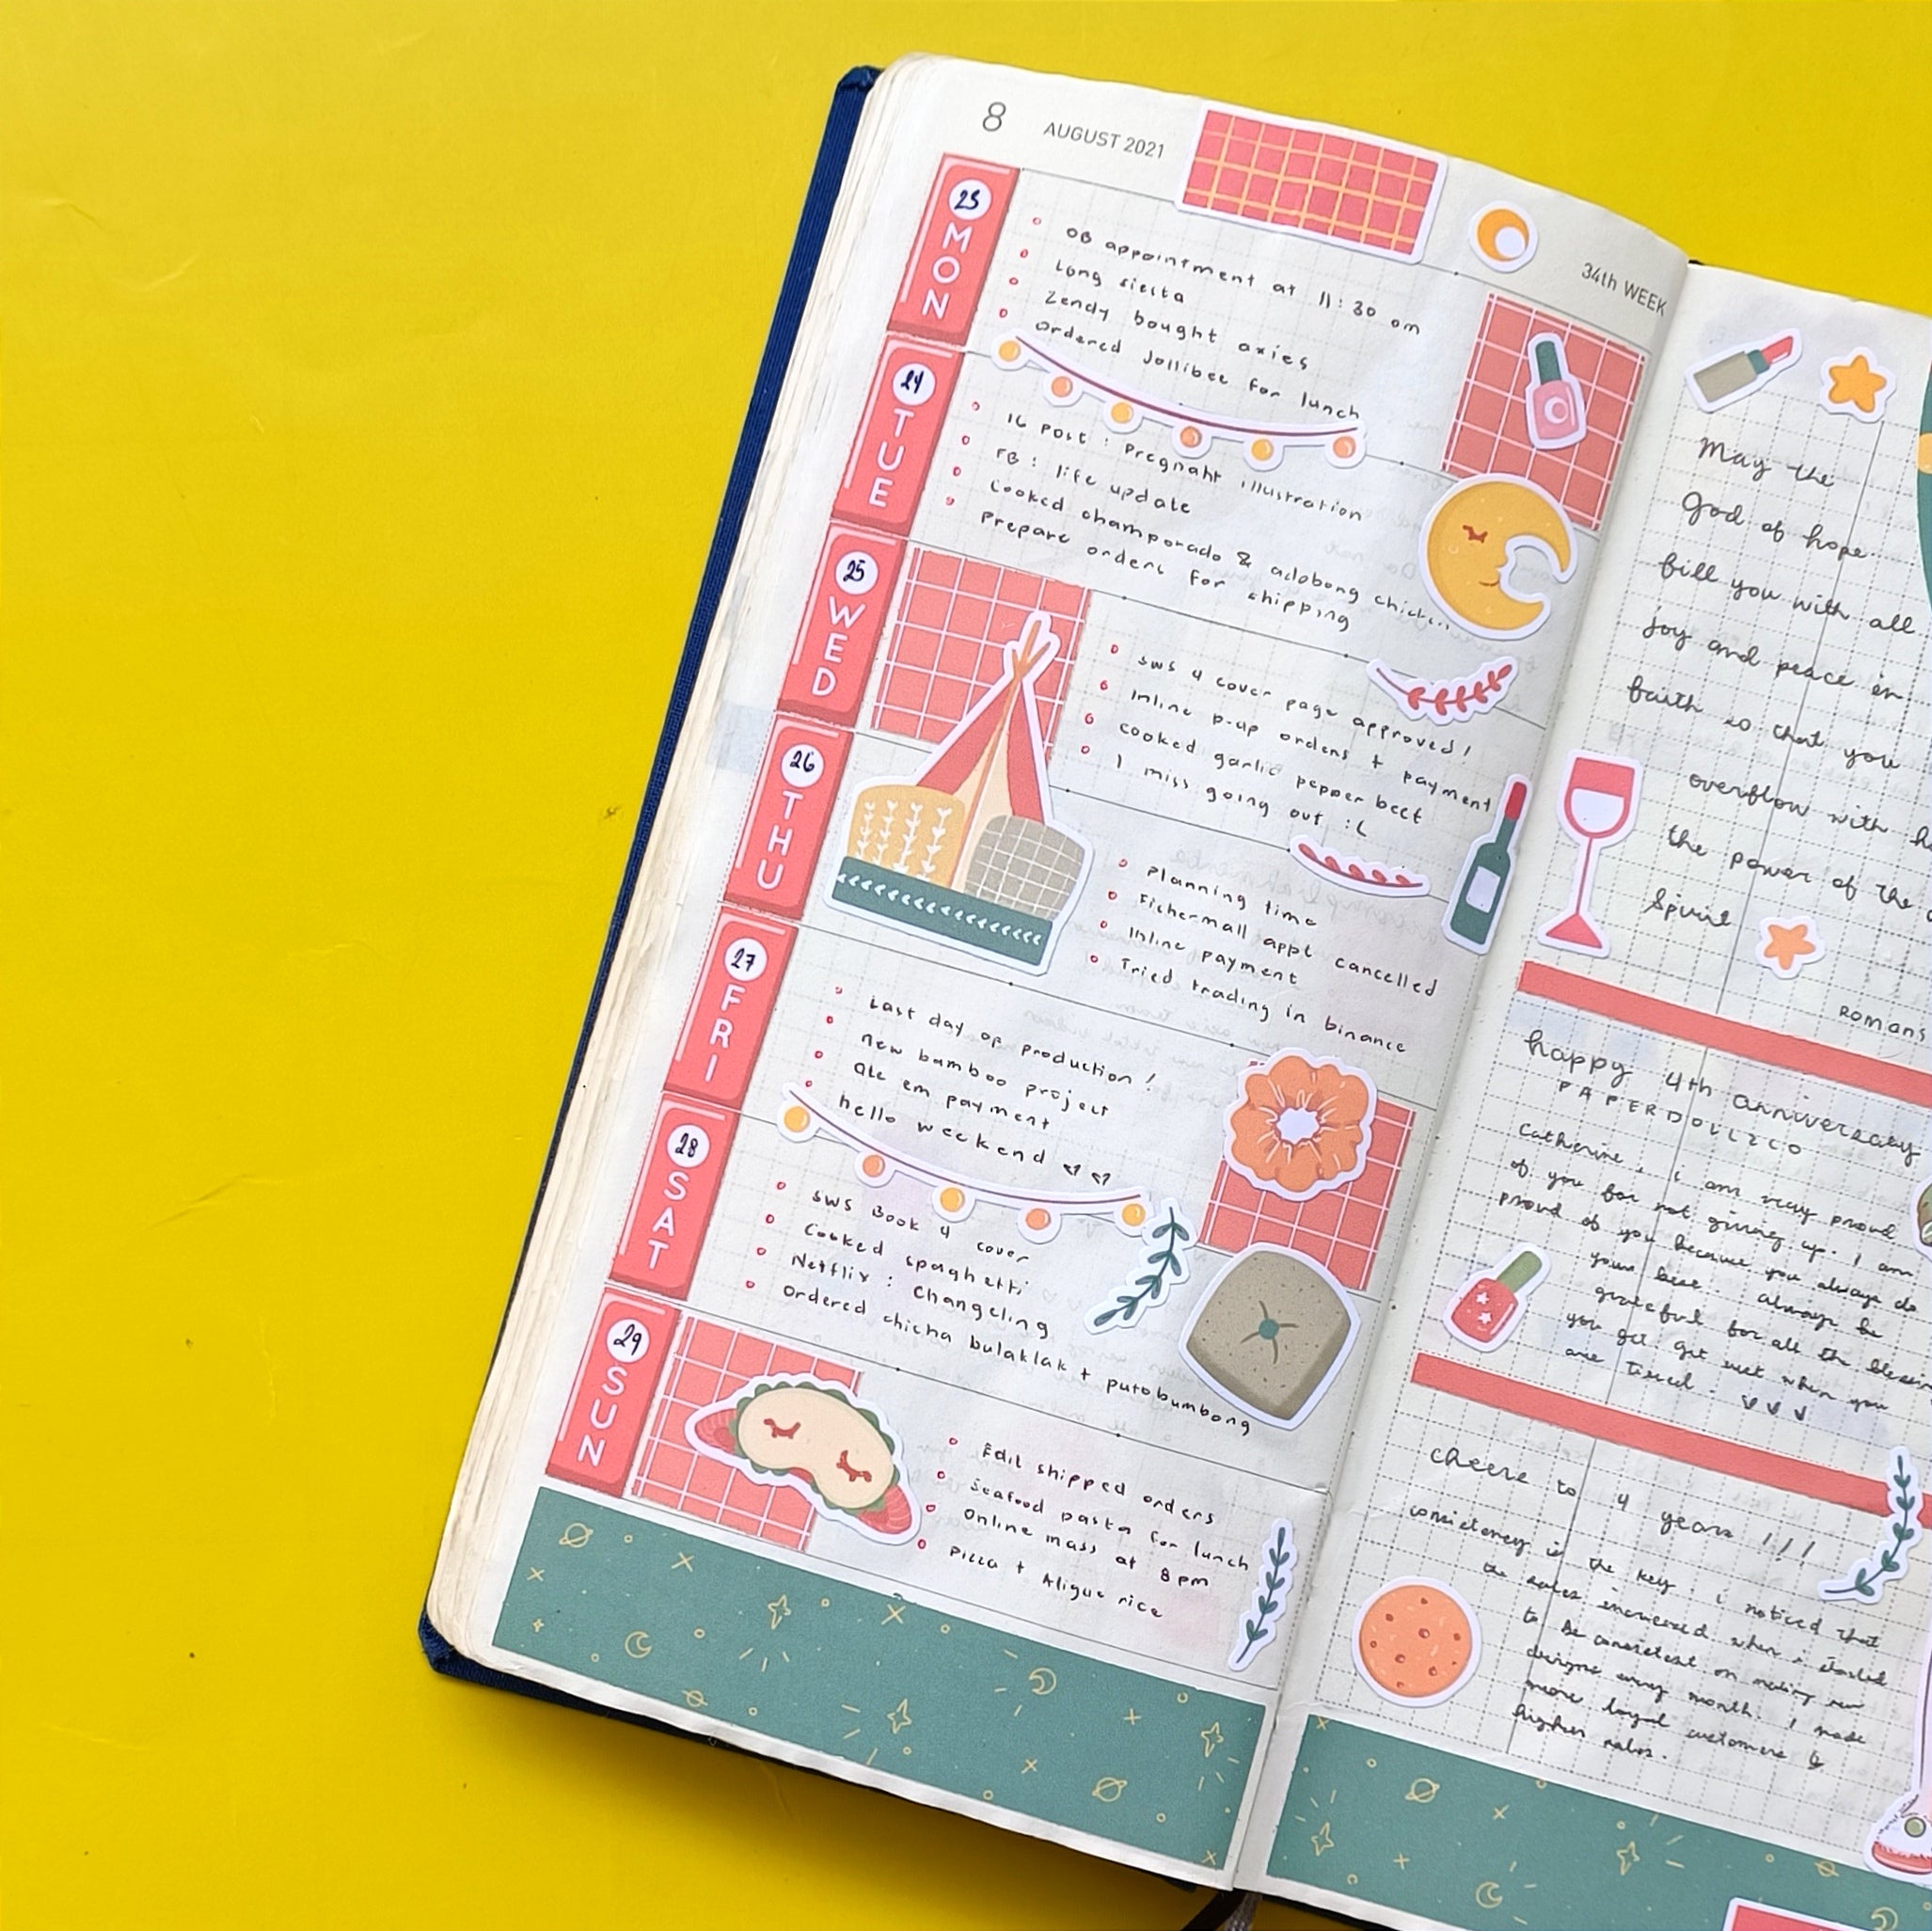 8 AUGUST 2021
34th WEEK
23 MON
OB appointment at 11:30 am
Long siesta
Zendy bought axies
Ordered Jollibee for lunch
24 TUE
IG Post : Pregnant illustration
FB : life update
Cooked champorado & adobong
Prepare orders for shipping
25 WED
SWS 4 cover page approved!
Inline p-up orders + payment
cooked garlic pepper beef
I miss going out :(
26 THU
Planning time
Fishermall appt cancelled
Inline payment
Tried trading in binance
27 FRI
Last day of production!
New bamboo project
payment
hello weekend
28 SAT
SWS Book 4 cover
Cooked spaghetti
Netflix : Changeling
Ordered chicha bulaklak + putobumbong
29 SUN
Edit shipped orders
Seafood pasta for lunch
Online mass at 8 pm
Pizza + Aligue rice
May the
God of hope
fill you with all
joy and peace in
faith so that you
overflow with
the power of the
Spirit
ROMANS
happy 4th anniversary
PAPERDOLLZCO
Catherine, i am very proud
of you for not giving up. I am
proud of you because you always do
your best. Always be
grateful for all the
you get. Get rest when you
are tired.
Cheers to 4 years !!!
consistency is the key. i noticed that
the sales increased when i started
to be consistent on making new
designs every month. I made
more loyal customers &
higher sales.